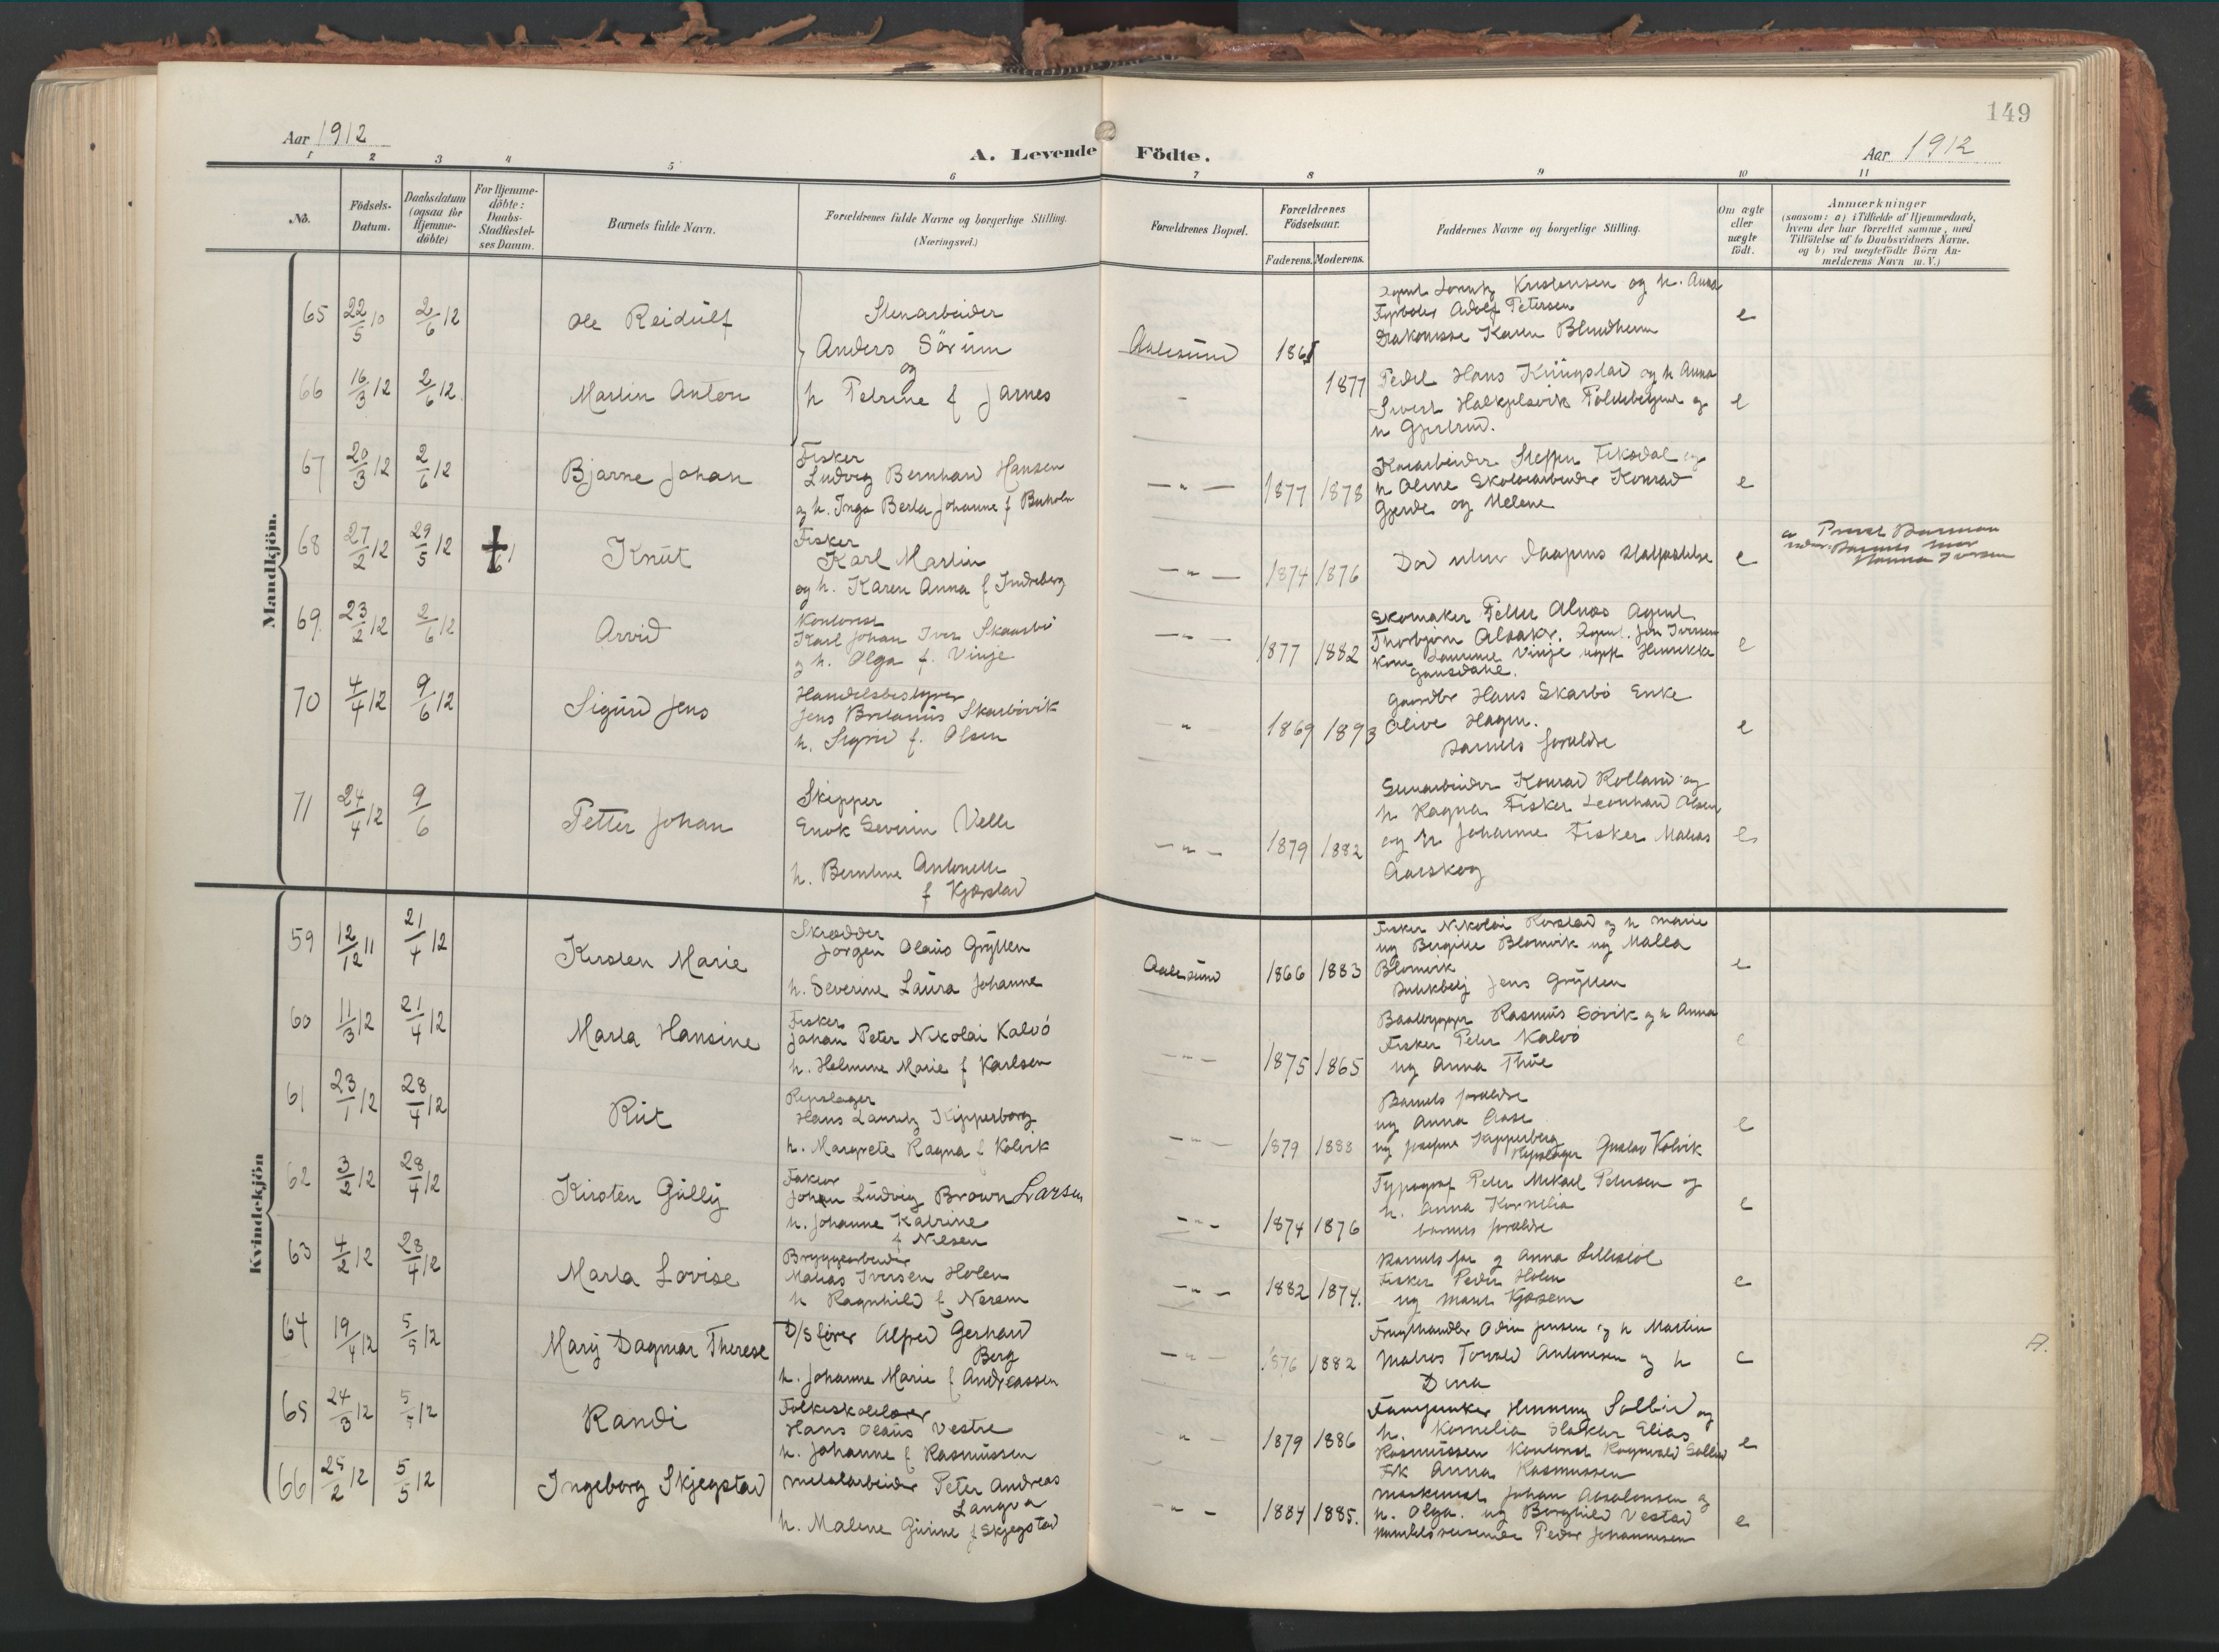 149
Aar 1912
A. Levende Födte.
Aar 1912
1 2 3 4 5 6 7 8 9 10 11
No.
Födsels-
Datum.
Daabsdatum
(ogsaa for
Hjemme-
döbte)
For Hjemme-
döbte:
Daabs-
Stadfæstel-
ses Datum.
Barnets fulde Navn.
Forældrenes fulde Navne og borgerlige Stilling.
(Næringsvei.)
Forældrenes Bopæl.
Forældrenes
Födselsaar.
Faderens. Moderens.
Faddernes Navne og borgerlige Stilling.
Om ægte
eller
uægte
födt.
Anmærkninger
(saasom: a) i Tilfælde af Hjemmedaab,
hvem der har forrettet samme, med
Tilföielse af to Daabsvidners Navne.
og b) ved uægtefödte Börn An-
melderens Navn m. V.)
Mandkjön.
65 22/5 10 2/6 12 Ole Reidulf
Stenarbeider
Anders Sörum
og
Aalesund 1861
Kristensen og h. Anna
Adolf Petersen
Karen Blindheim
e
66 16/3 12 2/6 12 Martin Anton
h Petrine f Jarnes
1877
Hans Kringstad og h Anna
Sivert
h Gjertrud.
e
67 20/3 12 2/6 12 Bjarne Johan
Fisker
Ludvig Bernhard Hansen
og h. Inga Berta Johanne f
— " — 1877 1878
Steffen Fiksdal og
h Oline Konrad
Gjerde og Helene
e
68 27/2 12 29/5 12 Knut
Fisker
Karl Martin
og h. Karen Anna f Indreberg
— " — 1874 1876
Död uden Daabens Stadfæstelse
e
Barnets mor
Iversen
69. 23/2 12 2/6 12 Arvid
Kontorist
Karl Johan Iver Skaarbö
og h. Olga f. Vinje
— " — 1877 1882
Skomaker Petter Alnæs Agent
Thorbjörn Alsaker. Agent. Iversen
Vinje ugpk Henrikke
e
70 4/4 12 9/6 12 Sigurd Jens
Handelsbestyrer
Jens Skarbövik
h. Sigrid f. Olsen
" 1869 1893
Gaardbr Hans Skarbö Enke
Olive Hagen.
Barnets forældre
e
71 24/4 12 9/6 Petter Johan
Skipper
Enok Severin Velle
h. Berntine Antonette
f Kjærstad
— " — 1879 1882
Konrad Rolland og
h Ragna Fisker Leonhard Olsen
og h Johanne Fisker Matias
Aarskog
e
Kvindekjön
59 12/12 11 21/4 12 Kirsten Marie
Skrædder
Jörgen Olaus Grytten
h. Severine Laura Johanne
Aalesund 1866 1883
Fisker Nikolai og h Marie
ug Bergitte Blomvik ug Malla
Blomvik
Jens Grytten
e
60 11/3 12 21/4 12 Marta Hansine
Fisker
Johan Peter Nikolai Kalvö
h. Helmine Marie f Karlsen
— " — 1875 1865
Baadbygger Rasmus Sövik og h Anna
Fisker Peter Kalvö
ug Anna Thue
e
61 23/1 12 28/4 12 Rut
Repslager
Hans Lauritz Kipperberg
h. Margrete Ragna f Kolvik
— " — 1879 1888
Barnets forældre
ug Anna Aase
ug Josefine Kipperberg
Repslager Gustav Kolvik
e
62 3/2 12 28/4 12 Kirsten Gully
Faktor
Johan Ludvig Brown Larsen
h. Johanne Katrine
f Nilsen
— " — 1874 1876
Typograf Peter Mikael Petersen og
h. Anna Kornelia
barnets forældre
e
63 4/2 12 28/4 12 Marta Lovise
Bryggearbeider
Matias Iversen Holen
h Ragnhild f Nerem
— " — 1882 1874.
Barnets far og Anna Lillestöl
Fisker Peder Holen
ug Marit Kjösem
e
64 19/4 12 5/5 12 Mary Dagmar Therese
D/S förer Alfred Gerhard
Berg
h. Johanne Marie f Andreassen
— " — 1876 1882
Frugthandler Odin Jensen og h Martin
Matros Torvald Antonsen og h
Dina
e
65 24/3 12 5/5 12 Randi
Folkeskolelærer
Hans Olaus Vestre
h. Johanne f Rasmussen
" 1879 1886
Henning Solbue og
h. Kornelia Elias
Rasmussen Kontorist Ragnvald
Frk Anna Rasmussen
e
66 25/2 12 5/5 12 Ingeborg Skjegstad
Metalarbeider Peter Andreas
Langva
h. Malene Gurine f Skjegstad
— " — 1884 1885.
Maskinist Johan Absalonsen og
h. Olga. ug Borghild Vestad
Handelsreisende Peder Johannesen
e